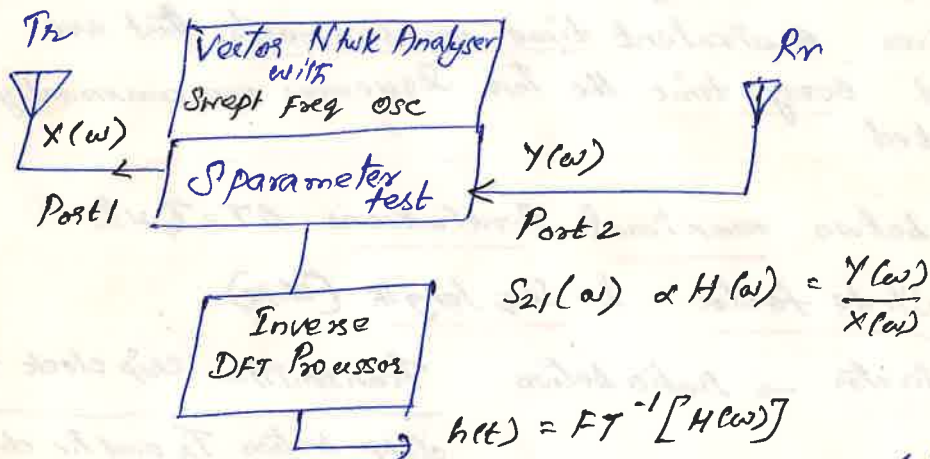 Tr
Vector N/wk Analyser
with
Swept Freq Osc
Rr
X(ω)
Port1
S parameter
test
Y(ω)
Port 2
S21(ω) ∝ H(ω) = Y(ω)/X(ω)
Inverse
DFT Processor
h(t) = FT⁻¹[H(ω)]